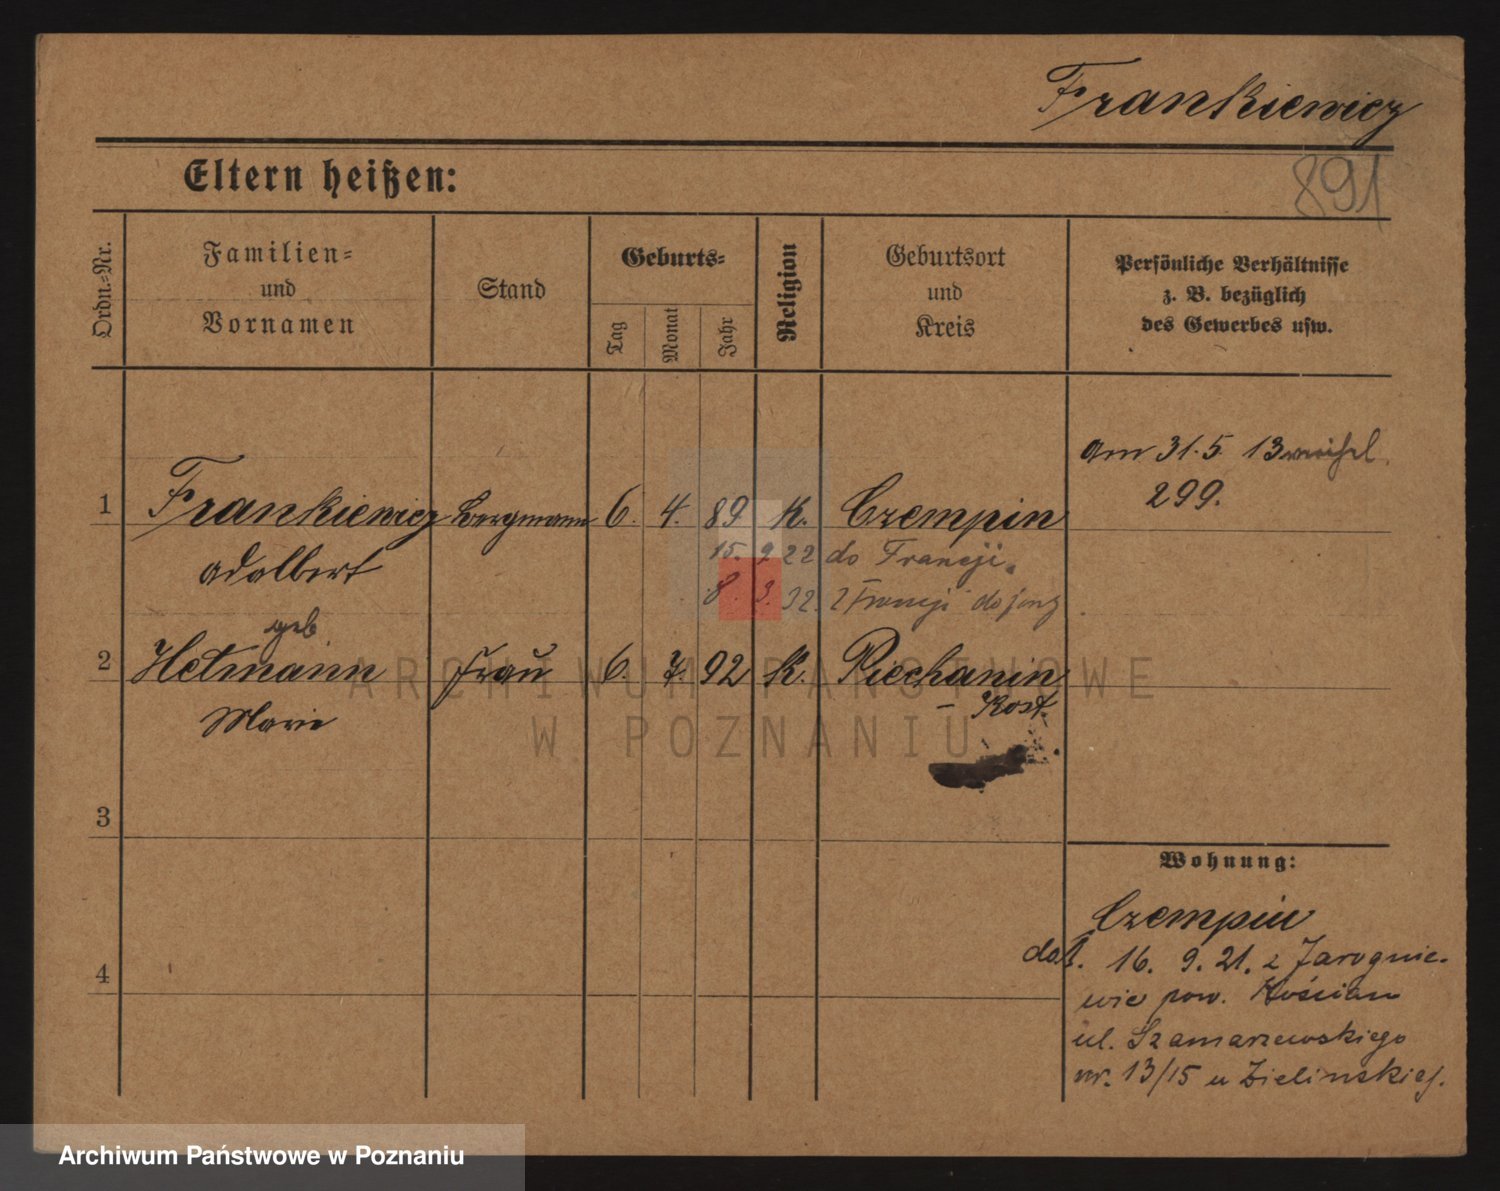 Frankiewicz
891
Eltern heißen:
Ordn.-Nr.
Familien-
und
Vornamen
Stand
Geburts-
Tag
Monat
Jahr
Religion
Geburtsort
und
Kreis
Persönliche Verhältnisse
z. B. bezüglich
des Gewerbes usw.
am 31.5 13
299.
1 Frankiewicz Bergmann 6. 4. 89 K. Czempin
adalbert
15. 9 22 do Francji.
8. 3. 32. z Francji do
geb
2 Hetmann Frau 6. 7. 92 K. Piechanin
Marie
- Kost.
3
4
Wohnung:
Czempin
dot. 16. 9. 21. z Jarognie-
wic pow. Kościan
ul. Szamarzewskiego
nr. 13/15 u Zielinskiej.
ARCHIWUM PAŃSTWOWE
W POZNANIU
Archiwum Państwowe w Poznaniu